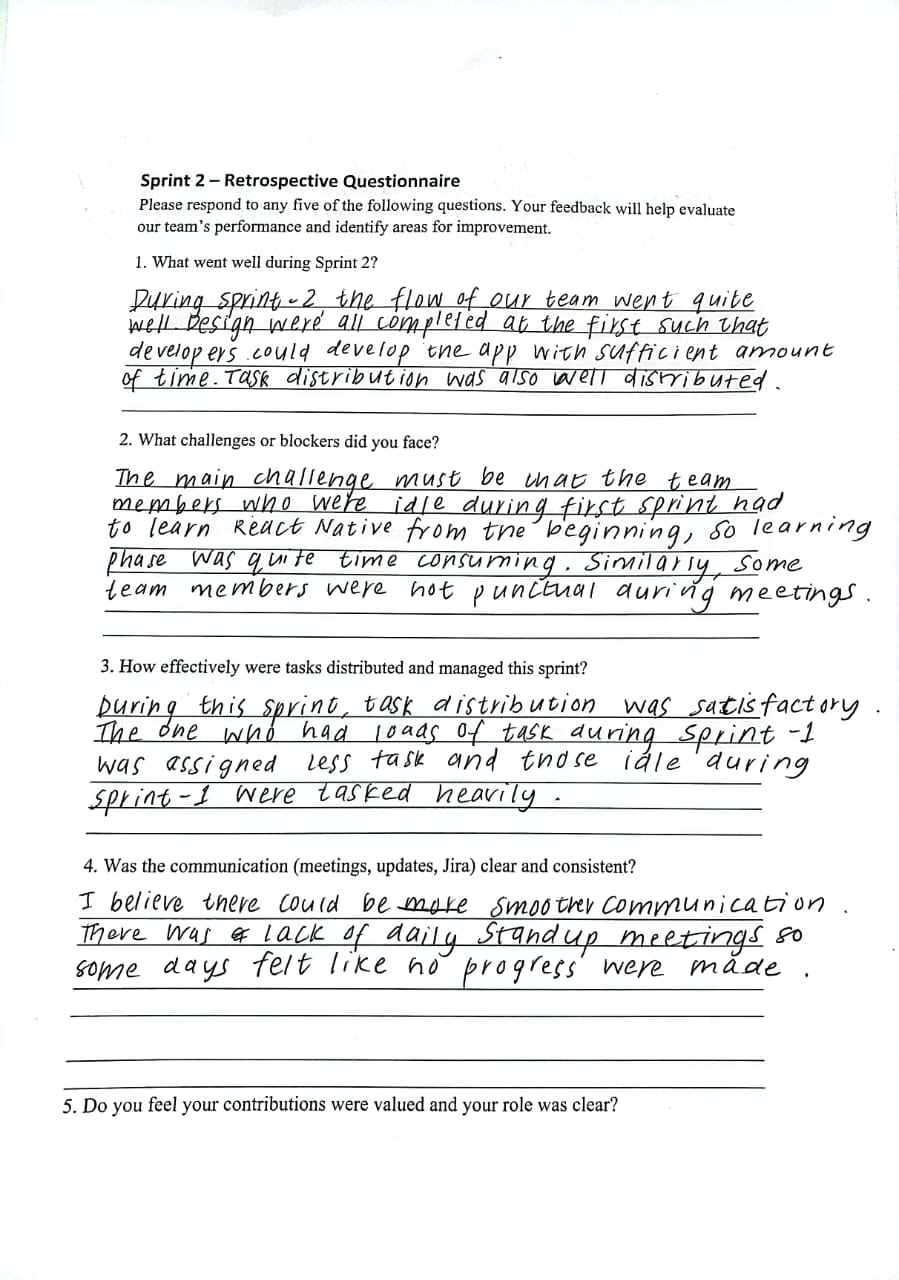 Sprint 2 – Retrospective Questionnaire
Please respond to any five of the following questions. Your feedback will help evaluate
our team's performance and identify areas for improvement.
1. What went well during Sprint 2?
During sprint-2 the flow of our team went quite
well. Design were all completed at the first such that
developers could develop the app with sufficient amount
of time. Task distribution was also well distributed.
2. What challenges or blockers did you face?
The main challenge must be that the team
members who were idle during first sprint had
to learn React Native from the beginning, so learning
phase was quite time consuming. Similarly, some
team members were not punctual during meetings.
3. How effectively were tasks distributed and managed this sprint?
During this sprint, task distribution was satisfactory.
The one who had loads of task during sprint-1
was assigned less task and those idle during
sprint-1 were tasked heavily.
4. Was the communication (meetings, updates, Jira) clear and consistent?
I believe there could be more smoother communication.
There was a lack of daily standup meetings so
some days felt like no progress were made.
5. Do you feel your contributions were valued and your role was clear?